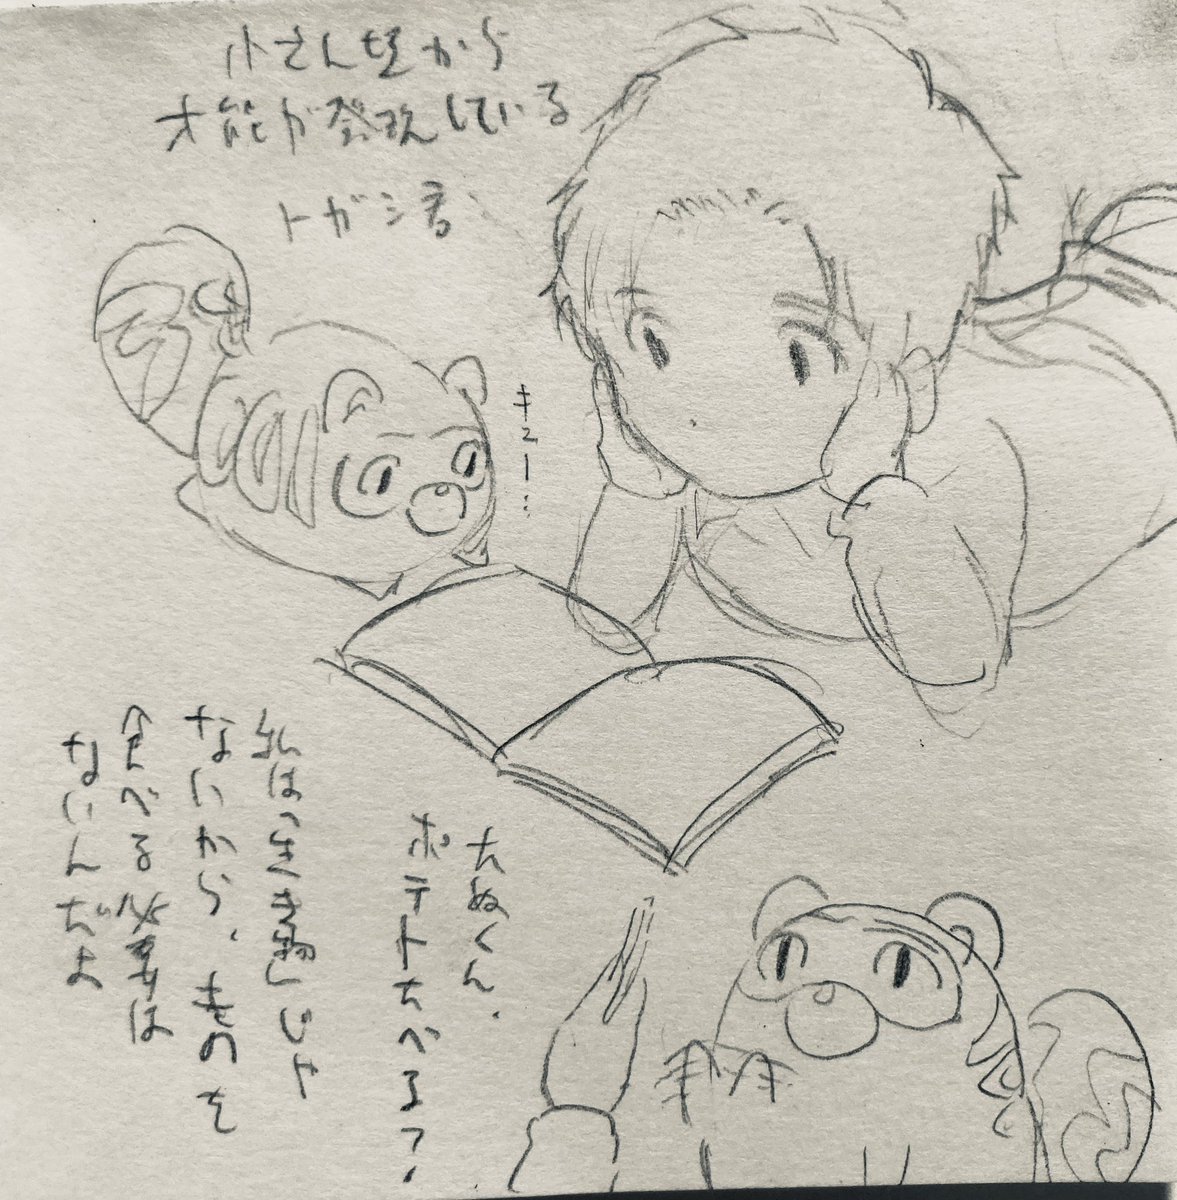 小さん坊から
才能が発玖している
トガシ君
キュー…
たぬくん、
ポテトたべる?
私はいきものじゃ
ないから、ものを
食べる必要は
ないんだよ